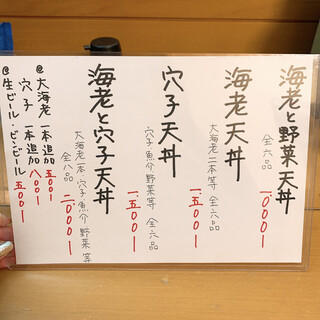 海老と野菜天丼
全六品
一、〇〇〇ー
海老天丼
大海老二本等 全六品
一、五〇〇ー
穴子天丼
穴子・魚介・野菜等 全六品
一、五〇〇ー
海老と穴子天丼
大海老一本・穴子・魚介・野菜等
全八品
二、〇〇〇ー
@大海老 一本追加 五〇〇ー
穴子 一本追加 八〇〇ー
@生ビール・ビンビール 五〇〇ー